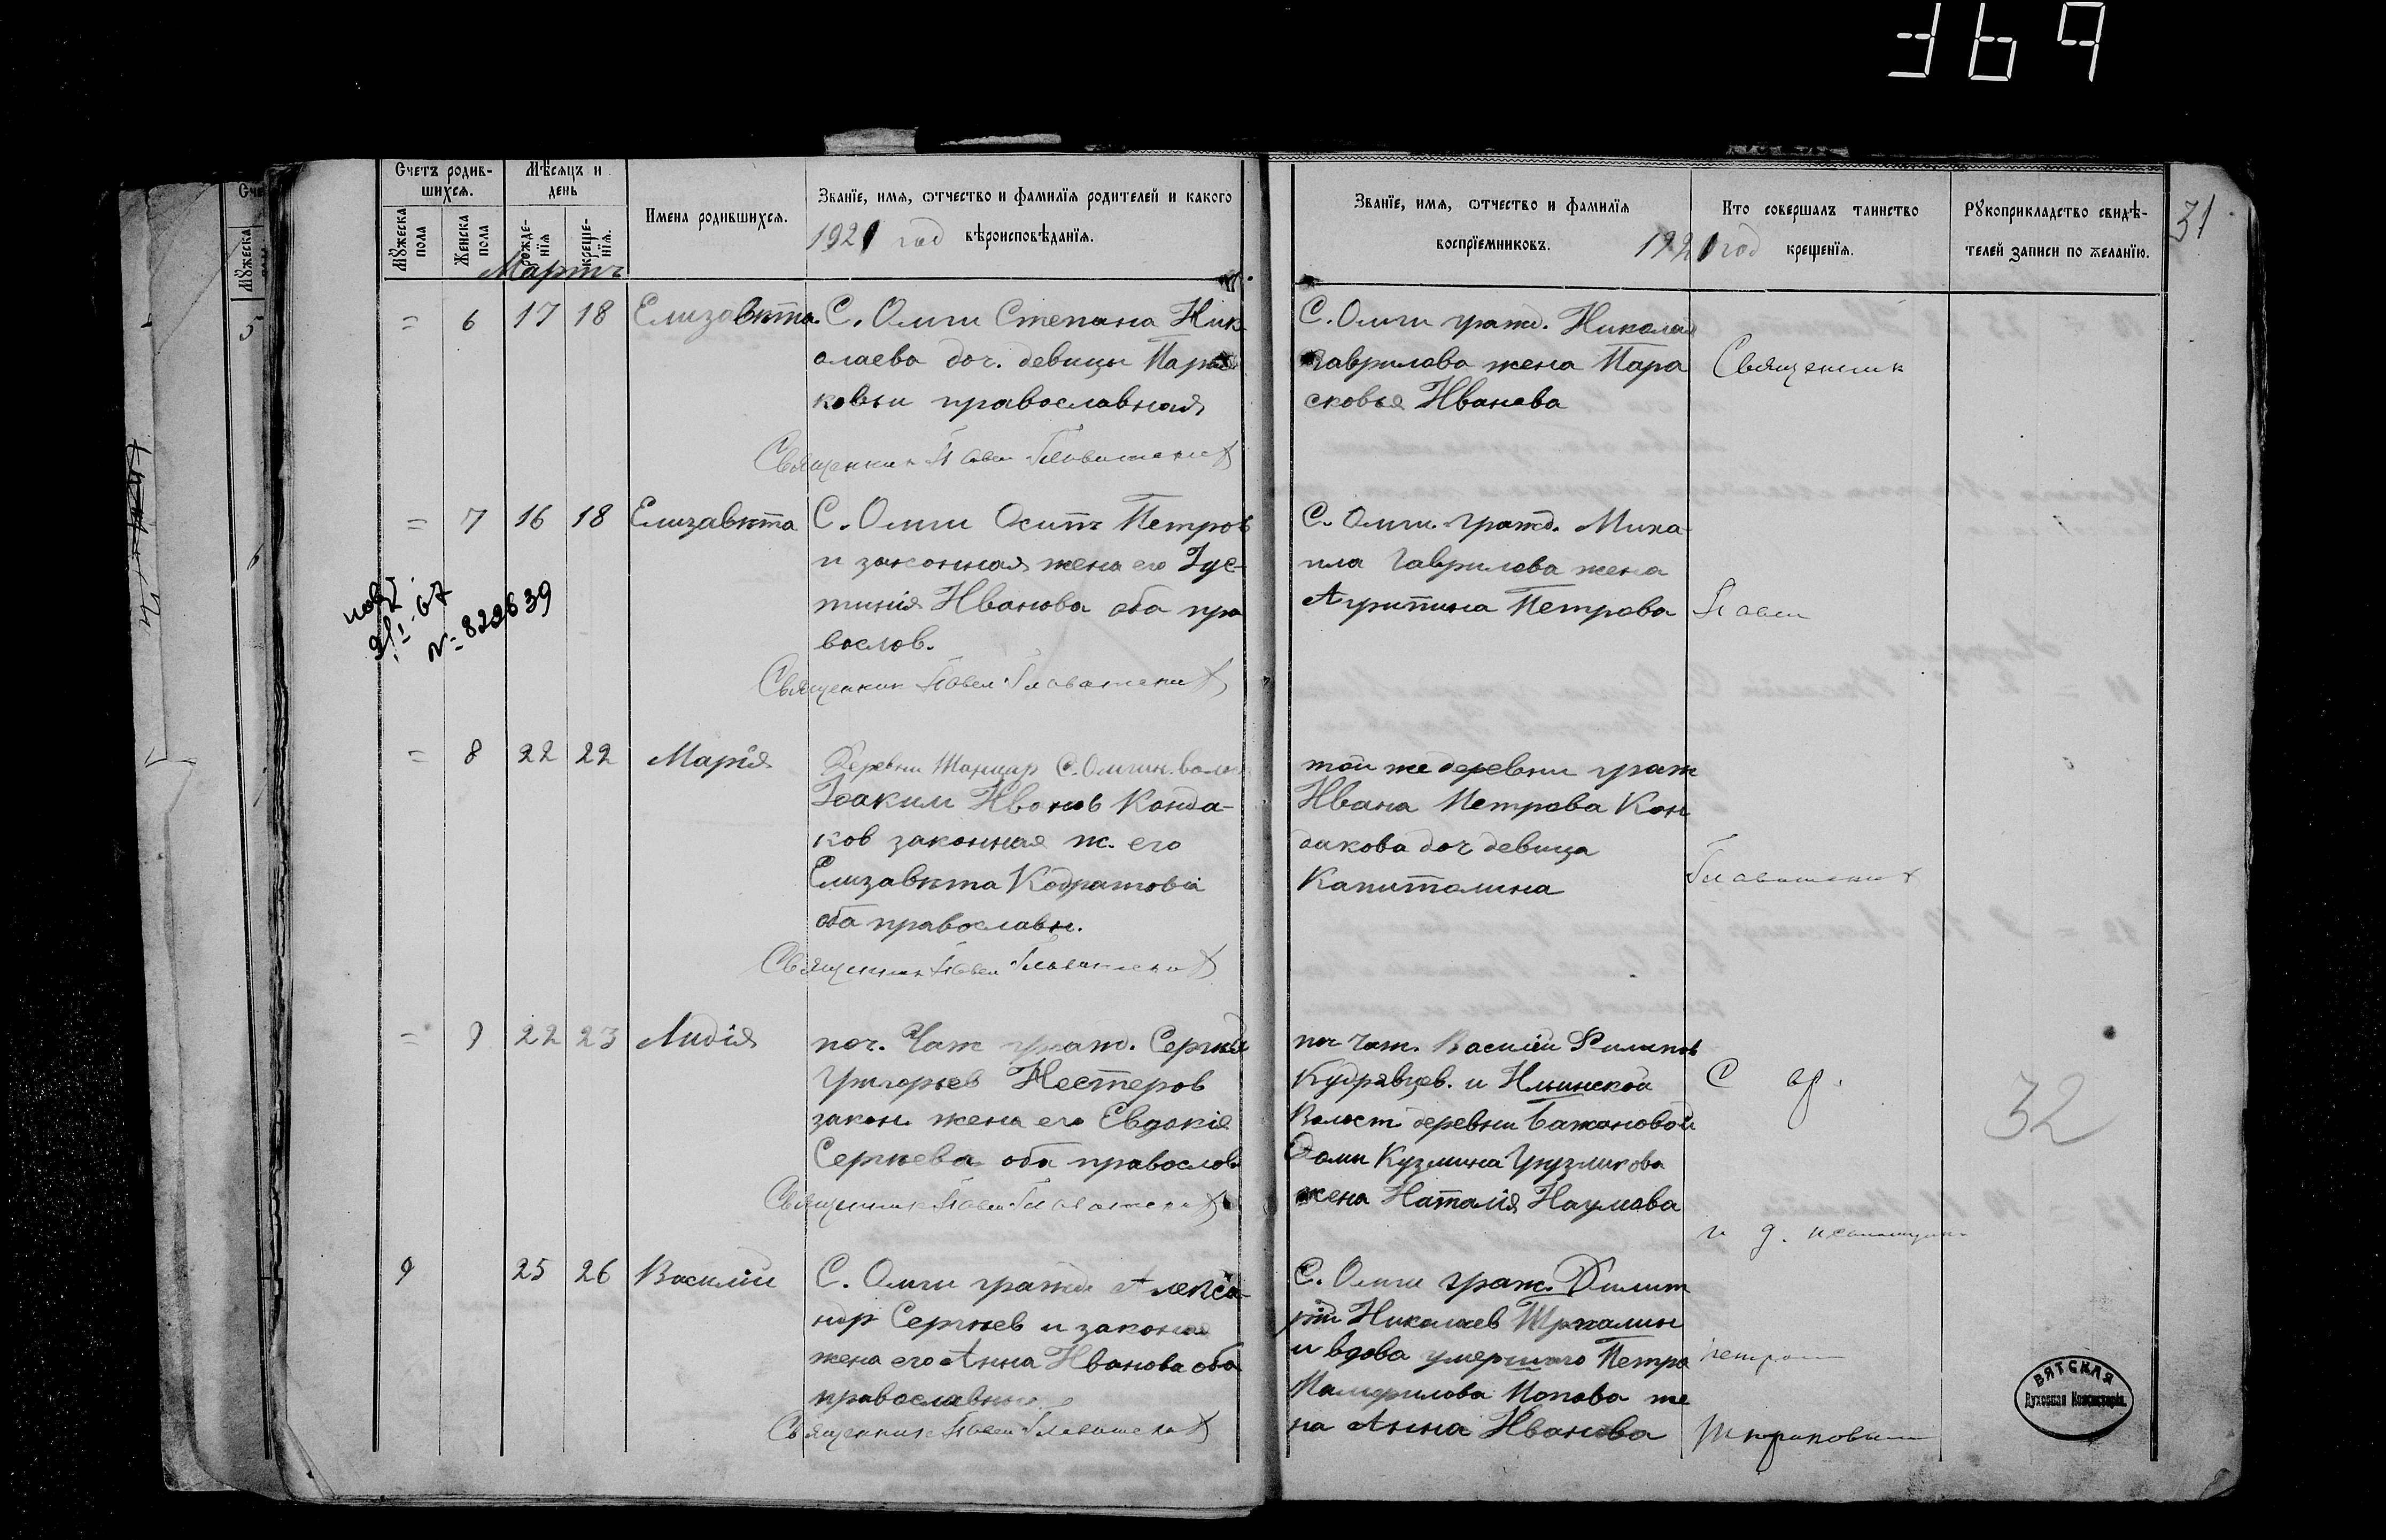 369
Счетъ родив-
шихся.
Мѣсяцъ и
день
Мужеска
пола
Женска
пола
рожде-
нія
креще-
нія.
Имена родившихся.
Званіе, имя, отчество и фамилія родителей и какого
1921 год вѣроисповѣданія.
Мартъ
Званіе, имя, отчество и фамилія
воспріемниковъ.
1921 год
Кто совершалъ таинство
крещенія.
Рукоприкладство свидѣ-
телей записи по желанію.
31
= 6 17 18 Елизавѣта
С. Ольги Степана Ник
олаева доч. девицы Парас
ковьи православная
Священник Павел
С. Ольги гражд. Николая
Гаврилова жена Пара
сковья Иванова
Священник
= 7 16 18 Елизавѣта
С. Ольги Осипъ Петров
и законная жена его Іус-
тинія Иванова оба пра
вослов.
Священник Павел
С. Ольги гражд. Миха
ила Гаврилова жена
Агрипина Петрова
Павел
67
№ 822639
= 8 22 22 Марія
Деревни С. Ольгин. волос
Іоаким Иванов Конда-
ков законная ж. его
Елизавѣта Кодратова
оба православн.
Священник Павел
той же деревни граж
Ивана Петрова Кон
дакова доч девица
Капиталина
= 9 22 23 Лидія
поч. Чаж гражд. Сергѣй
Григорьев Нестеров
закон. жена его Евдокія
Сергѣева оба православ
Священник Павел
поч Чаж. Василій Филипов
Кудрявцев. и Ильинской
Волост деревни Бажановой
Фомы Кузмина
жена Наталія Наумова
32
и д. псаломщика
9 25 26 Василій
С. Ольги гражд Алекса-
ндр Сергѣев и законая
жена его Анна Иванова оба
православные
Священник Павел
С. Ольги граж. Димит
рій Николаев
и вдова умершаго Петра
Попова же
на Анна Иванова
ВЯТСКАЯ
Духовная Консисторія
5
6